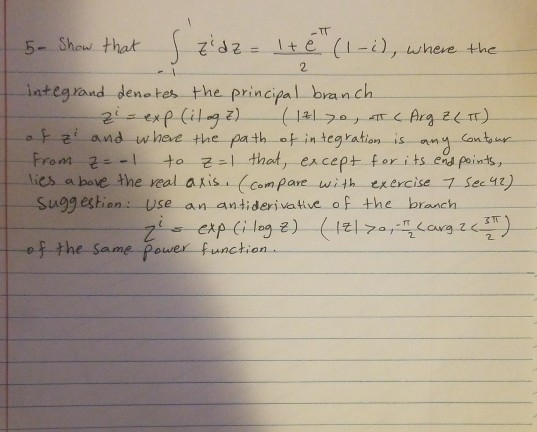 5- Show that ∫_{-1}^{1} z^i dz = (1 + e^{-π})/2 (1-i), where the
integrand denotes the principal branch
z^i = exp (i log z) (|z| > 0, -π < Arg z < π)
of z^i and where the path of integration is any contour
from z = -1 to z = 1 that, except for its end points,
lies above the real axis. (compare with exercise 7 sec 42)
Suggestion: use an antiderivative of the branch
z^i = exp (i log z) (|z| > 0, -π/2 < arg z < 3π/2)
of the same power function.